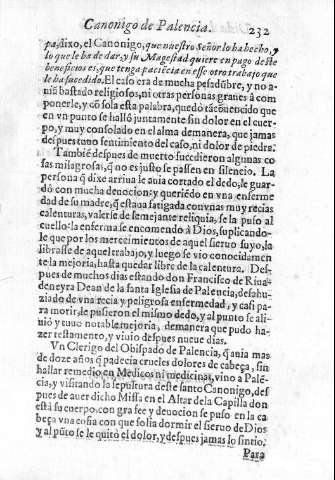 Canonigo de Palencia. 232
pa, dixo, el Canonigo, que nuestro Señor lo ha hecho, y
lo que le ha de dar, y su Magestad quiere en pago deste
beneficio es, que tenga paciẽcia en esse otro trabajo que
le ha sucedido. El caso era de mucha pesadũbre, y no a-
uiã bastado religiosos, ni otras personas graues à com
ponerle, y cõ sola esta palabra, quedò tã conuencido que
en vn punto se hallò juntamente sin dolor en el cuer-
po, y muy consolado en el alma de manera, que jamas
despues tuuo sentimiento del caso, ni dolor de piedra.
Tambiẽ despues de muerto sucedieron algunas co
sas milagrosas, q̃ no es justo se passen en silencio. La
persona q̃ dixe arriua le auia cortado el dedo, le guar-
dò con mucha deuocion: y queriẽdo en vna enferme
dad de su madre, q̃ estaua fatigada con vnas muy recias
calenturas, valerse de semejante reliquia, se la puso al
cuello: la enferma se encomendò à Dios, suplicando-
le que por los merecimientos de aquel sieruo suyo, la
librasse de aquel trabajo, y luego se vio conocidamen
te la mejoria, hasta quedar libre de la calentura. Des-
pues de muchos dias estando don Francisco de Riua-
deneyra Dean de la santa Iglesia de Palencia, desahu-
ziado de vna recia y peligrosa enfermedad, y casi pa-
ra morir, le pusieron el mismo dedo, y al punto se ali-
uiò y tuuo notable mejoria, de manera que pudo ha-
zer testamento, y viuio despues nueue dias.
Vn Clerigo del Obispado de Palencia, q̃ auia mas
de doze años q̃ padecia crueles dolores de cabeça, sin
hallar remedio en Medicos ni medicinas, vino a Palẽ-
cia, y visitando la sepultura deste santo Canonigo, des
pues de auer dicho Missa en el Altar de la Capilla don
està su cuerpo, con gra fee y deuocion se puso en la ca
beça vna cosa con que solia dormir el sieruo de Dios
y al pũto se le quitò el dolor, y despues jamas lo sintio.
Para